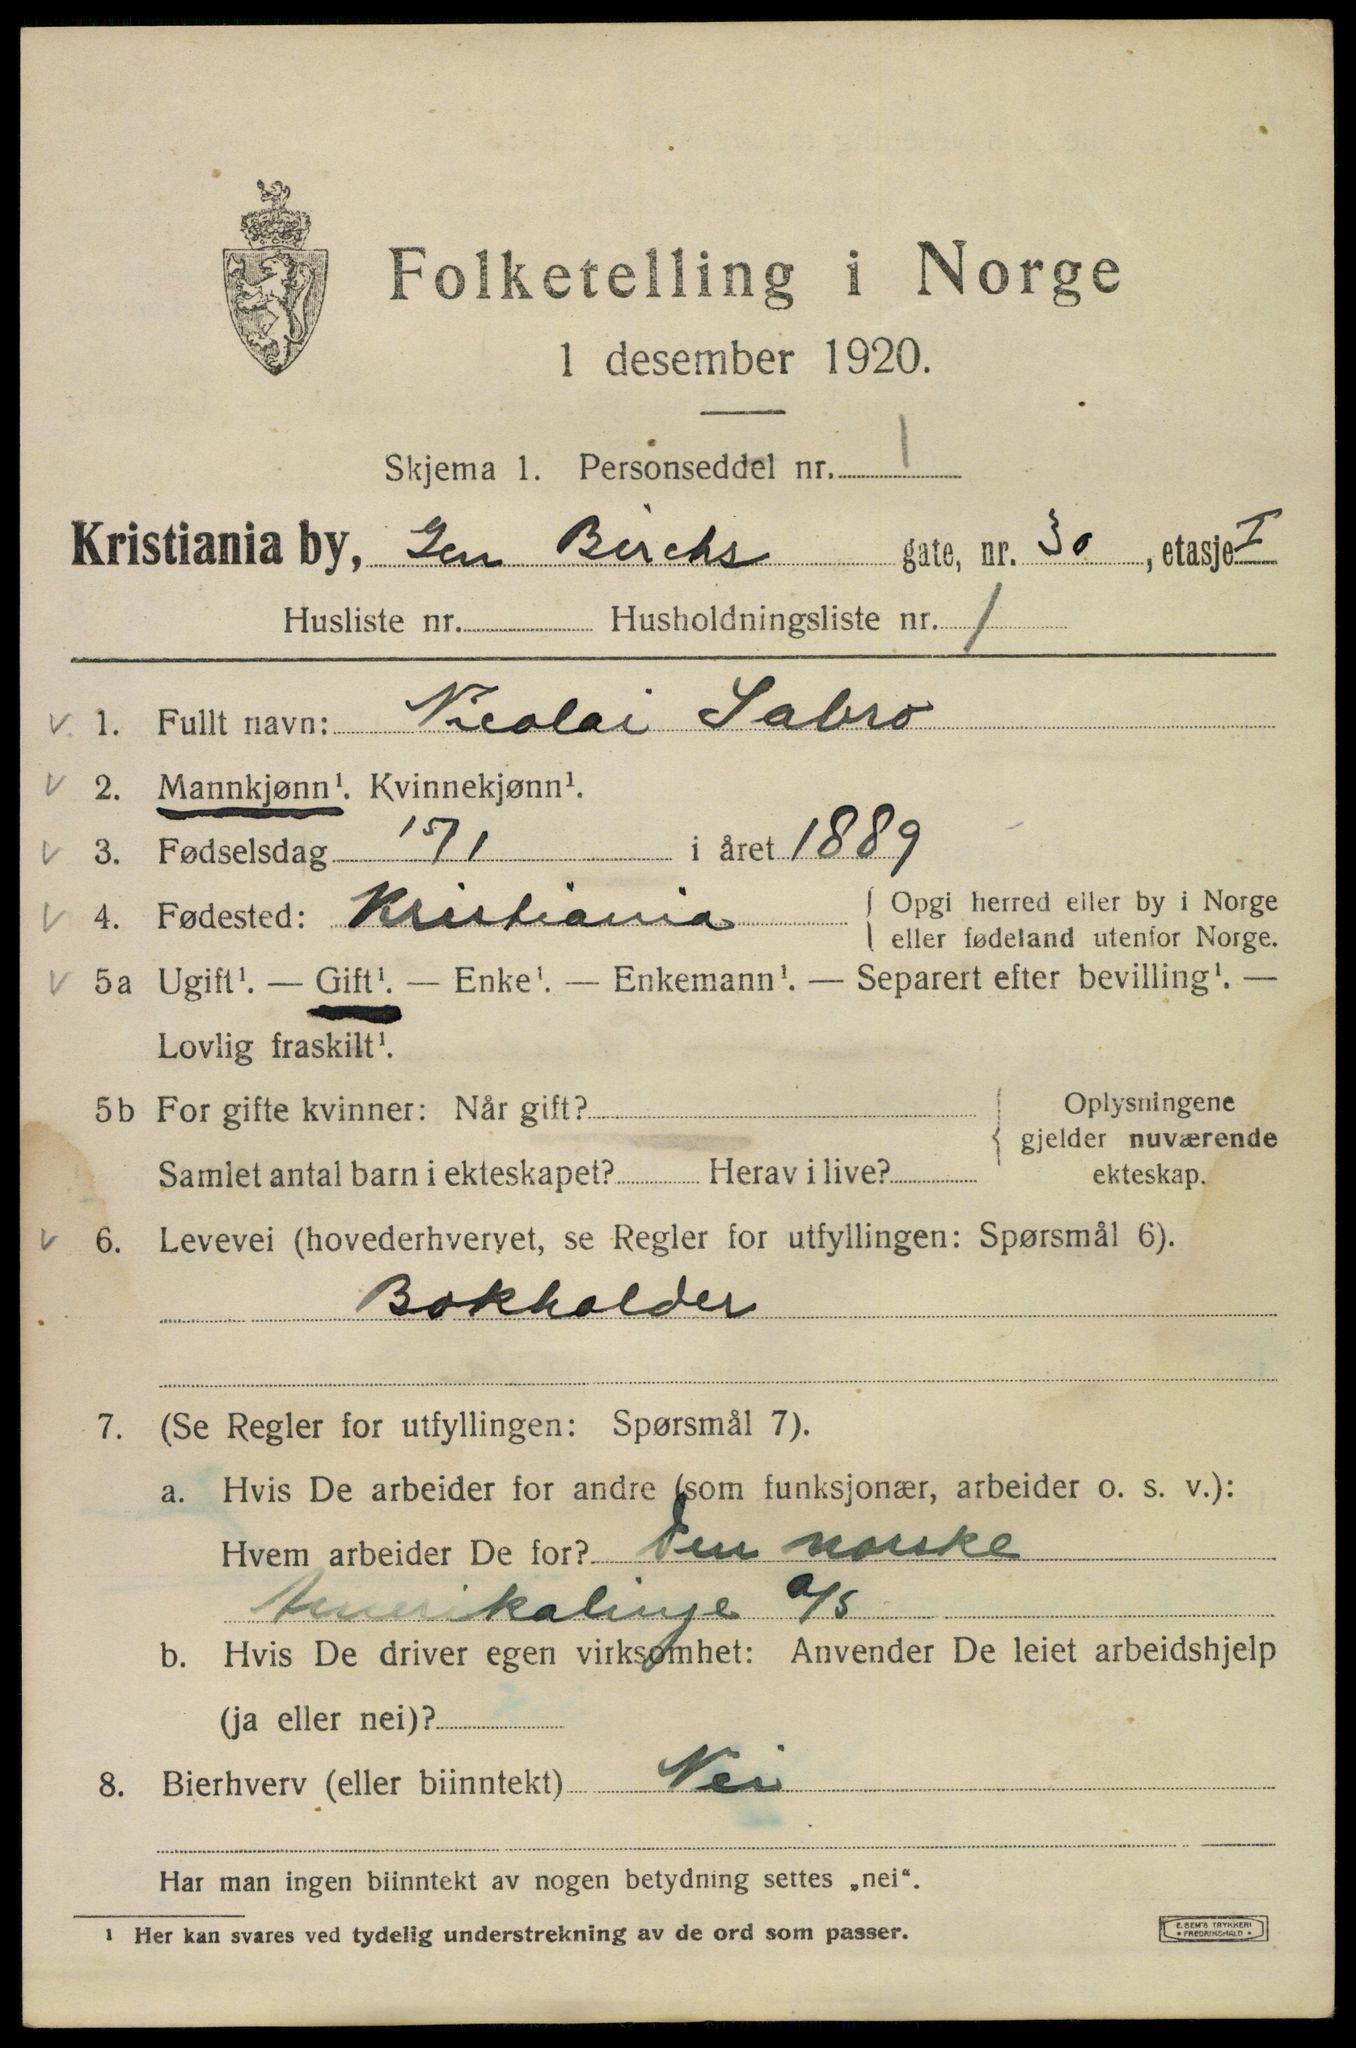 Folketelling i Norge
1 desember 1920.
Skjema 1. Personseddel nr. 1
Kristiania by, Gen Birchs gate, nr. 30, etasje I
Husliste nr. Husholdningsliste nr. 1
v 1. Fullt navn: Nicolai Sabro
v 2. Mannkjønn¹. Kvinnekjønn¹.
v 3. Fødselsdag 15/1 i året 1889
v 4. Fødested: Kristiania { Opgi herred eller by i Norge
eller fødeland utenfor Norge.
v 5a Ugift¹. — Gift¹. — Enke¹. — Enkemann¹. — Separert efter bevilling¹. —
Lovlig fraskilt¹.
5b For gifte kvinner: Når gift? { Oplysningene
gjelder nuværende
Samlet antal barn i ekteskapet? Herav i live? ekteskap.
v 6. Levevei (hovederhvervet, se Regler for utfyllingen: Spørsmål 6).
Bokholder
7. (Se Regler for utfyllingen: Spørsmål 7).
a. Hvis De arbeider for andre (som funksjonær, arbeider o. s. v.):
Hvem arbeider De for? Den norske
Amerikalinje a/s
b. Hvis De driver egen virksomhet: Anvender De leiet arbeidshjelp
(ja eller nei)?
8. Bierhverv (eller biinntekt) Nei
Har man ingen biinntekt av nogen betydning settes „nei".
¹ Her kan svares ved tydelig understrekning av de ord som passer.
E. SEM'S TRYKKERI
• FREDRIKSHALD •